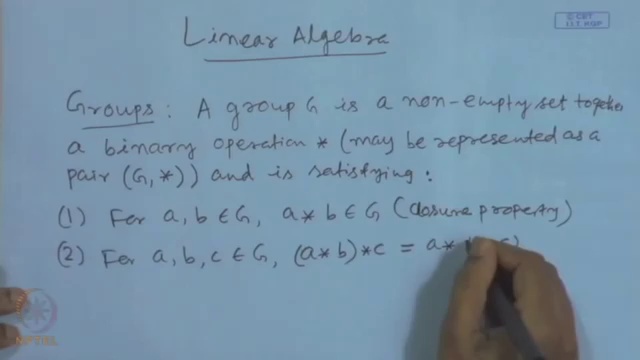 © CET
I.I.T. KGP
Linear Algebra
Groups : A group G is a non-empty set together
a binary operation * (may be represented as a
pair (G, *)) and is satisfying :
(1) For a, b ∈ G, a * b ∈ G (closure property)
(2) For a, b, c ∈ G, (a * b) * c = a * c)
NPTEL